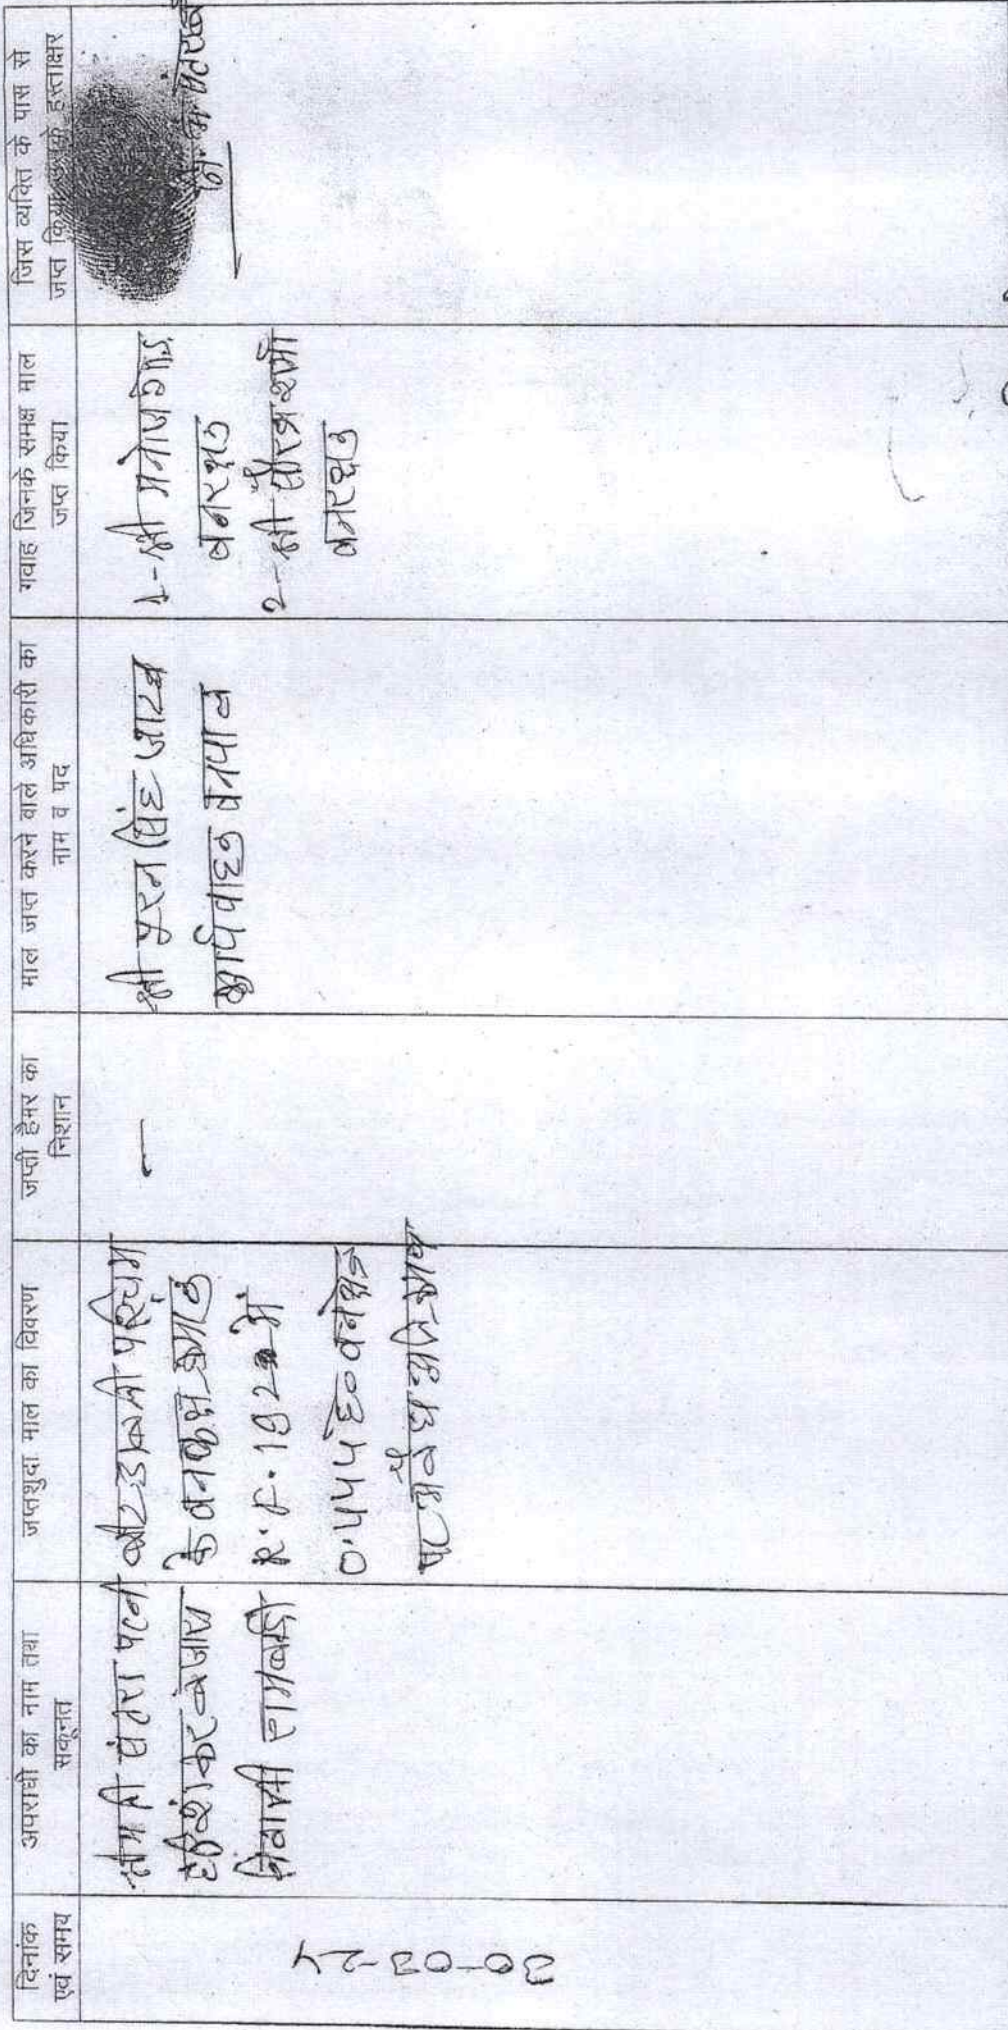 दिनांक
एवं समय
अपराधी का नाम तथा
सकूनत
जप्तशुदा माल का विवरण
जप्ती हैमर का
निशान
माल जप्त करने वाले अधिकारी का
नाम व पद
गवाह जिनके समक्ष माल
जप्त किया
जिस व्यक्ति के पास से
जप्त किया उसके हस्ताक्षर
30-03-24
श्रीमती संतरा पत्नी
हरिशंकर बंजारा
निवासी
पश्चिम
के वनकक्ष क्रमांक
R.F. 182 में
0.455 हे० वनक्षेत्र
—
श्री पूरन सिंह जाटव
कार्यवाहक वनपाल
1- श्री
वनरक्षक
2- श्री सौरभ शर्मा
वनरक्षक
नि.अ. संतराबाई